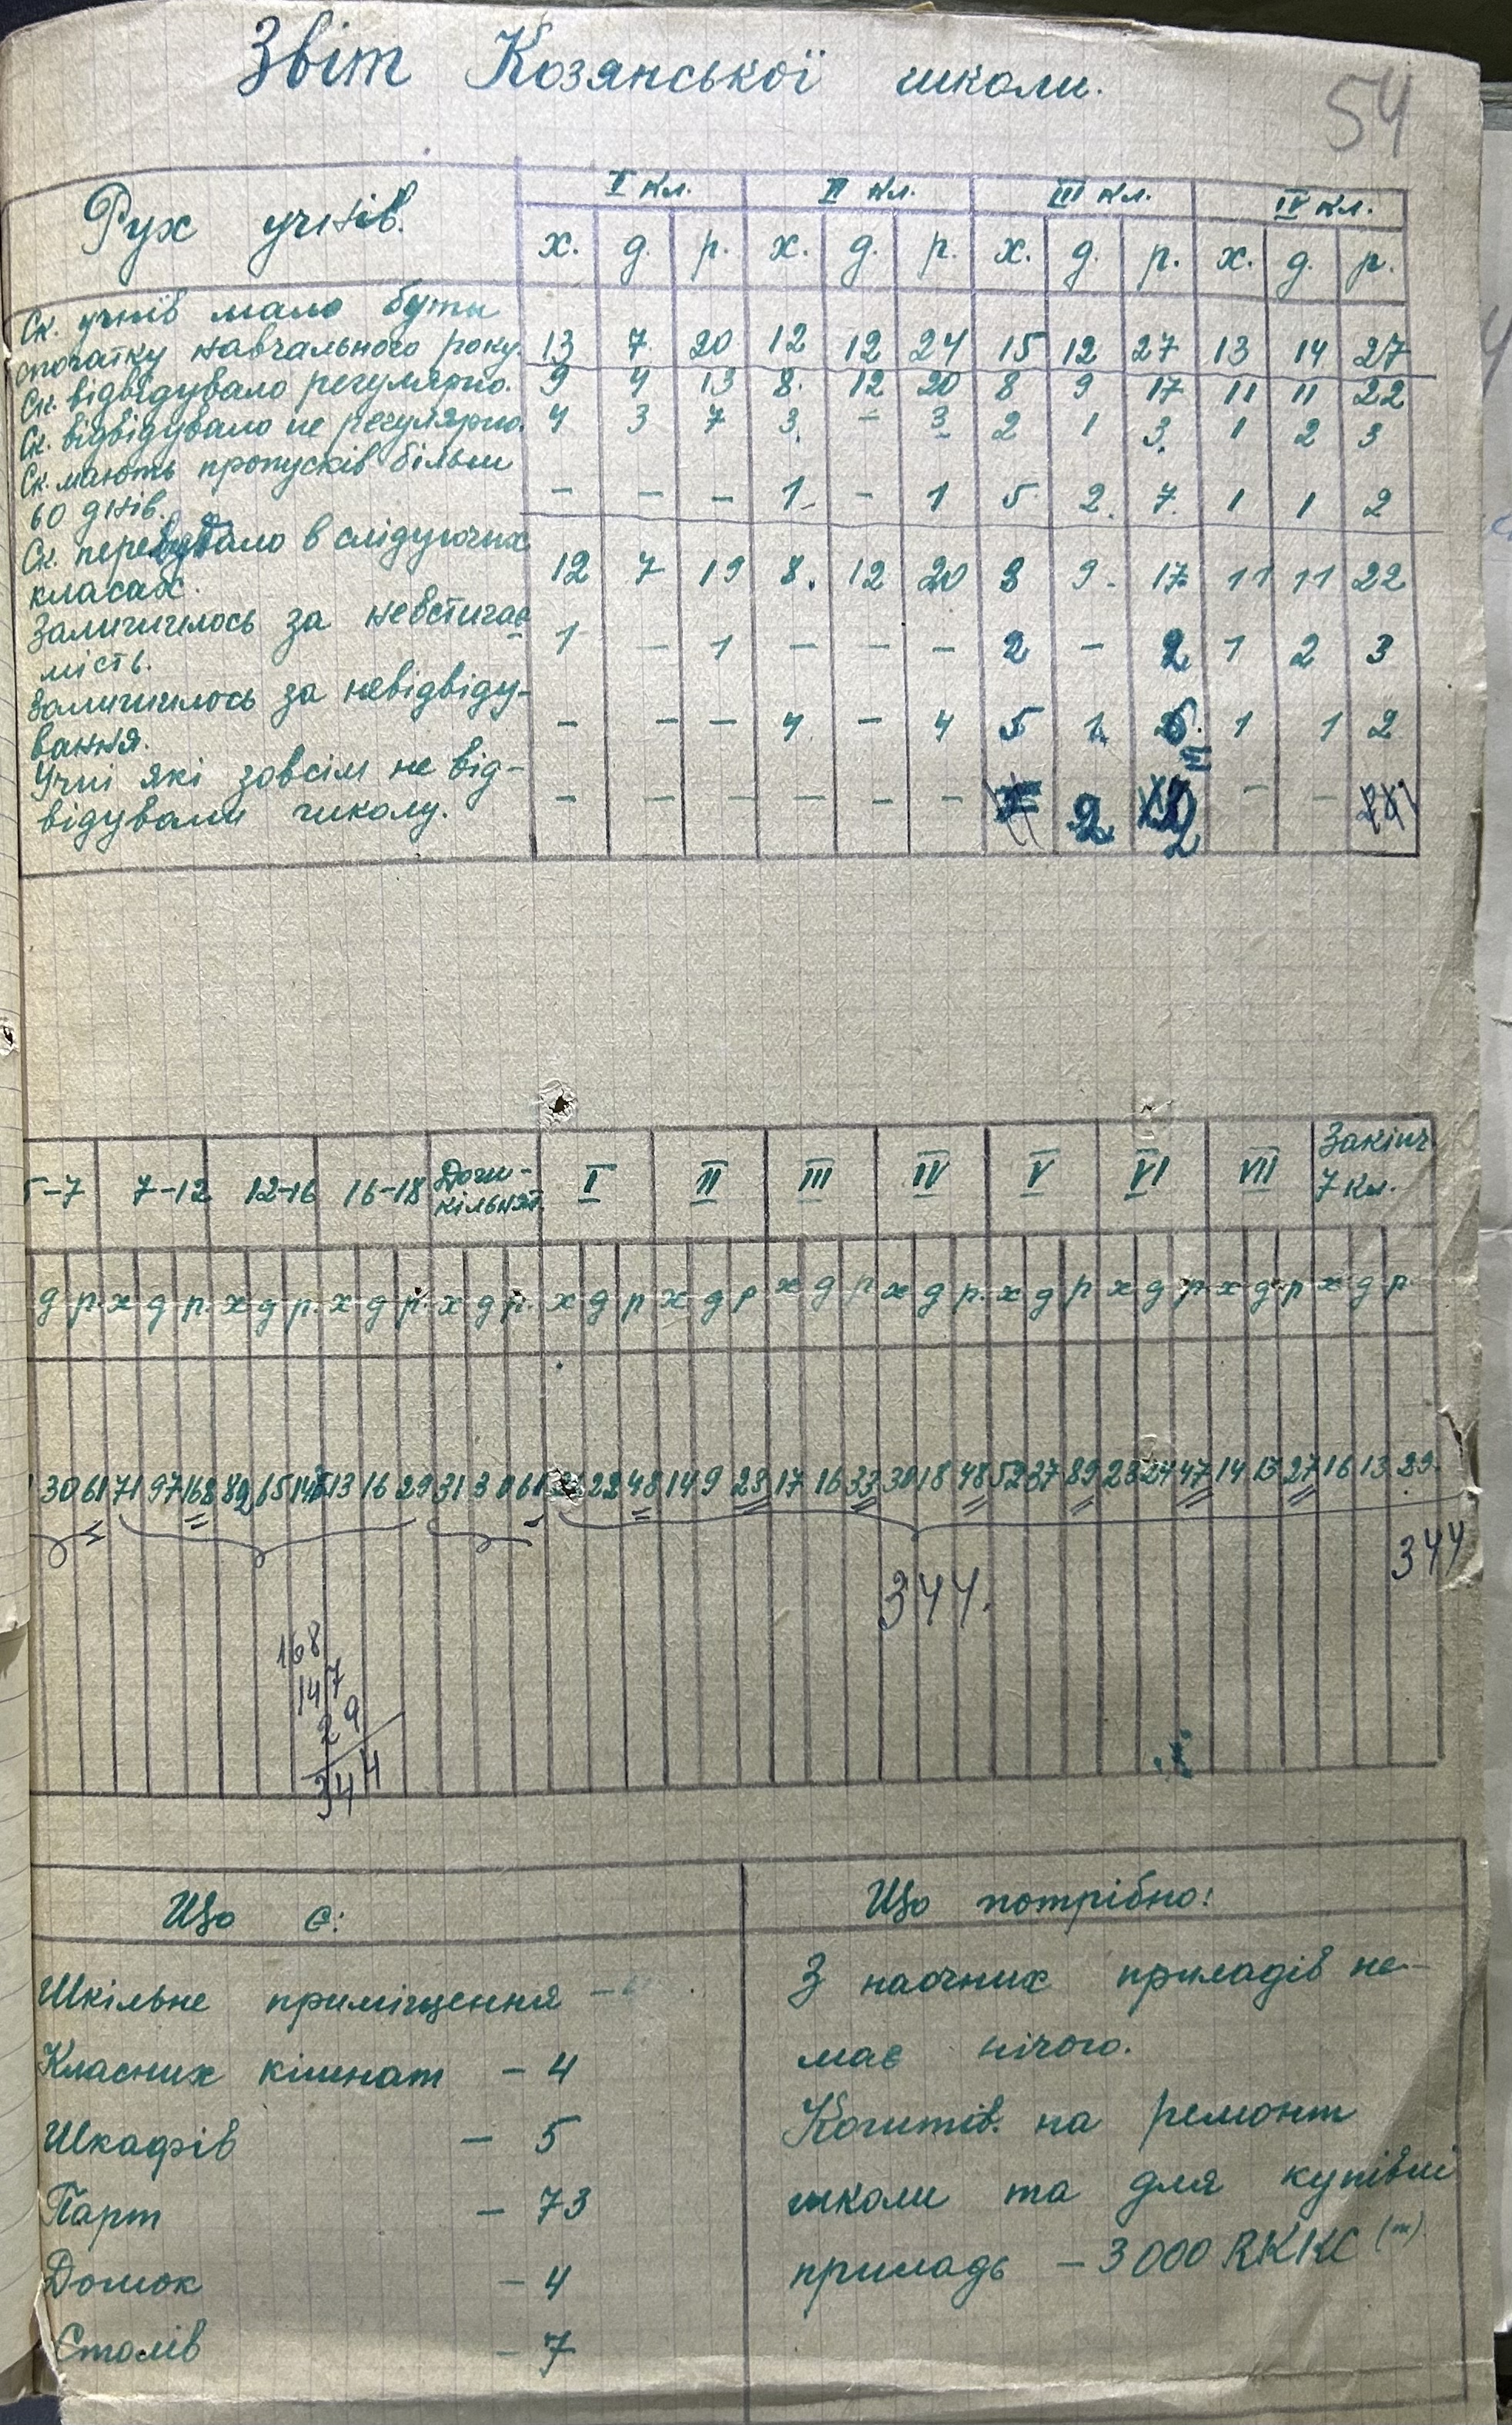 Звіт Козянської школи.
54
Рух учнів.
I кл. II кл. III кл. IV кл.
х. д. р. х. д. р. х. д. р. х. д. р.
Ск. учнів мало бути
спочатку навчального року. 13 7 20 12 12 24 15 12 27 13 14 27
Ск. відвідувало регулярно. 9 4 13 8. 12 20 8 9 17 11 11 22
Ск. відвідувало не регулярно. 4 3 7 3. – 3 2 1 3. 1 2 3
Ск. мають пропусків більш
60 днів. – – – 1 – 1 5 2. 7. 1 1 2
Ск. перебувало в слідуючих
класах. 12 7 19 8. 12 20 8 9 17 11 11 22
Залишилось за невстигає
мість. 1 – 1 – – – 2 – 2 1 2 3
Залишилось за невідвіду-
вання. – – – 4 – 4 5 1 6. 1 1 2
Учні які зовсім не від-
відували школу. – – – – – – 2 2 – –
5-7 7-12 12-16 16-18 Дош- I II III IV V VI VII Закінч.
кільнят. 7 кл.
д р. х д р. х д р. х д р. х д р. х д р х д р х д р х д р. х д р х д р. х д р х д р.
30 61 71 97 168 82 65 147 13 16 29 31 30 61 22 48 14 9 23 17 16 33 30 18 48 52 37 89 23 24 47 14 13 27 16 13 29.
344. 344
168
147
29
344
Що є: Що потрібно:
Шкільне приміщення – З наочних приладів не-
Класних кімнат – 4 має нічого.
Шкафів – 5 Коштів. на ремонт
Парт – 73 школи та для купівлі
Дошок – 4 приладь – 3000 RKKC
Столів – 7